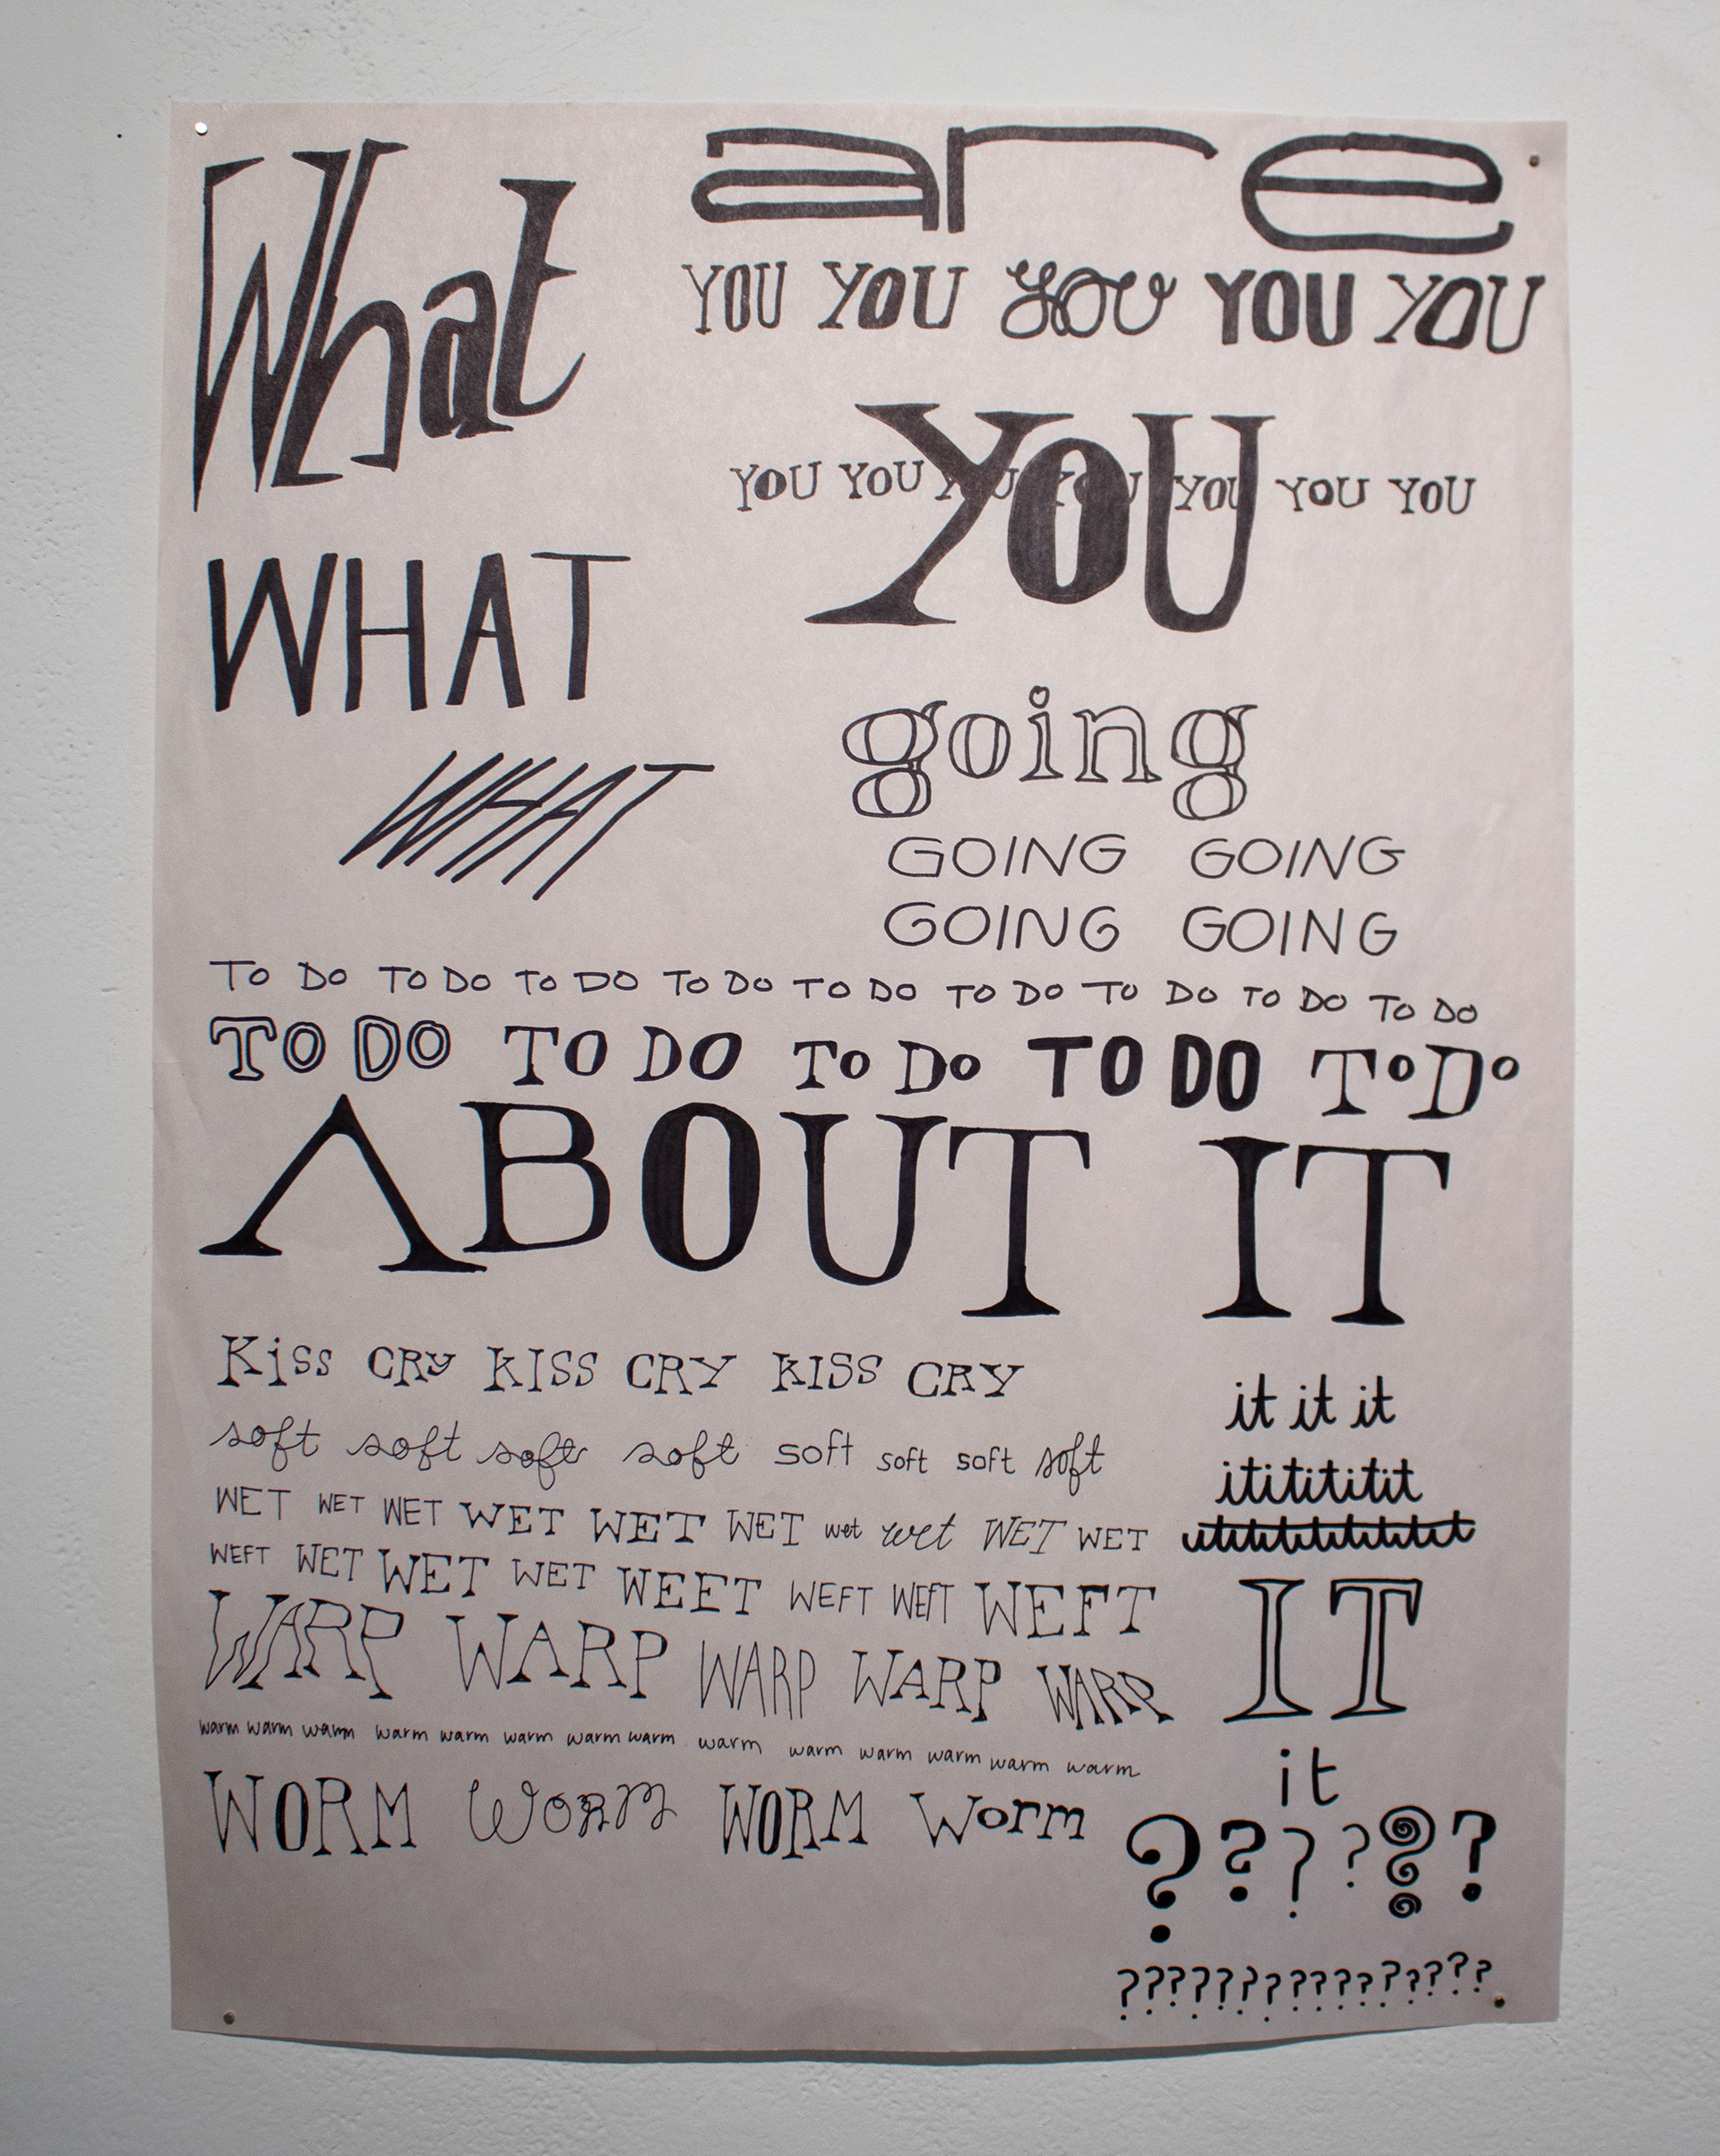 What
are
YOU YOU you YOU YOU
YOU YOU YOU YOU YOU YOU YOU
YOU
WHAT
WHAT
going
GOING GOING
GOING GOING
TO DO TO DO TO DO TO DO TO DO TO DO TO DO TO DO TO DO
TO DO TO DO To Do TO DO ToDo
ABOUT IT
Kiss CRy KISS CRY KISS CRY
soft soft soft soft soft soft soft soft
WET WET WET WET WET WET wet wet WET WET
WEFT WET WET WET WEET WEFT WEFT WEFT
WARP WARP WARP WARP WARP
warm warm warm warm warm warm warm warm warm warm warm warm warm warm
WORM WORM WORM Worm
it it it
itititititit
IT
it
? ? ? ? ? ?
????????????????